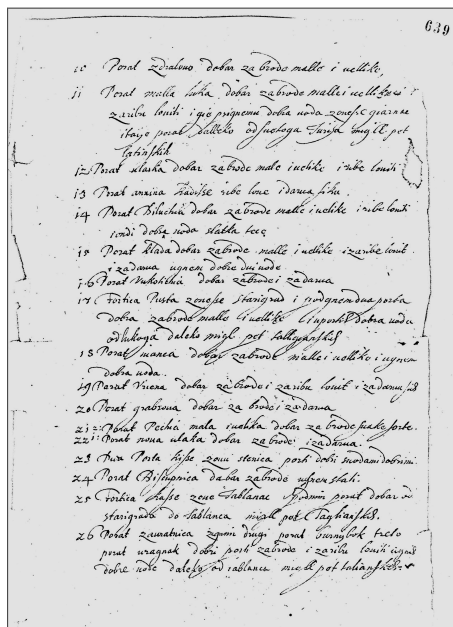 639
10 Porat Zdralovo dobar za brode malle i uellike,
11 Porat malla luka dobar zabrode malle i uellike i
zaribu louiti i gie prignemu dobra uoda
porat dalleko od suetoga Jurja migll pet
latinskih
12 Porat ulaska dobar zabrode male i uelike i ribe louiti
13 Porat annina ribe loue i darua sika.
14 Porat Biluchia dobar zabrode malle i uelike i ribe louiti
i ondi dobra uoda slatka tece
15 Porat klada dobar zabrode malle i uelike i zaribe louit
i zadarua ugnem dobre dui uode
16 Porat Vukelichia dobar zabrode i zadarua
17 Fortica Pusta zouesse starigrad i pod gnem dua porta
dobra zabrode malle i uellike i uporti dobra uoda
od lukoga daleko migl pet talliganskih
18 Porat manca dobar zabrode malle i uellike i ugnem
dobra uoda.
19 Porat Vicena dobar zabrode i zaribu louit i zadarua
20 Porat grabroua dobar za brode i zadarua
21 Porat Pechia mala i uelika dobar za brode suake sorte.
22 Porat noua ulaka dobar zabrode i zadarua.
23 Dua Porta zouu stenica porti dobri suodami dobrimi
24 Porat Bissupnica dobar zabrode ugnem stati.
25 Fortica zoue Jablanac porat dobar od
starigrada do Jablanca migll pet Tagliansk.
26 Porat zauratnica zgorni drugi porat burnybok treto
porat uragnak dobri porti zabrode i zaribu louiti
dobre uode daleko od iablanca migll pet talianskih